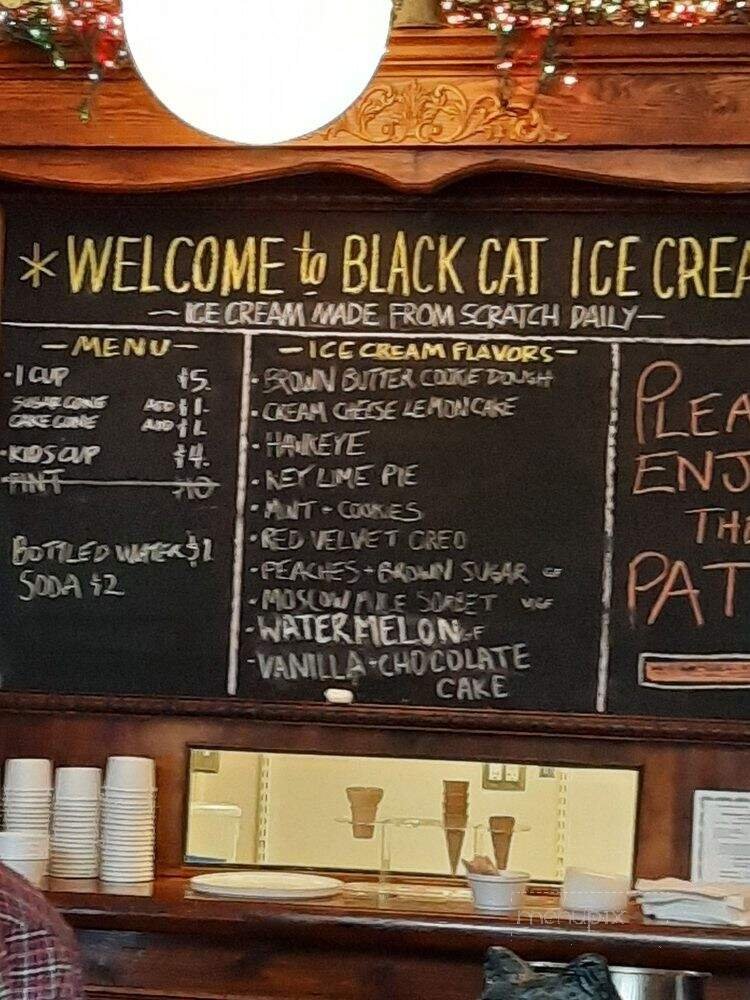 * WELCOME to BLACK CAT ICE CREA
— ICE CREAM MADE FROM SCRATCH DAILY —
— MENU —
· 1 CUP $5.
SUGAR CONE ADD $1.
CAKE CONE ADD $1.
· KIDS CUP $4.
PINT $10
BOTTLED WATER $1
SODA $2
— ICE CREAM FLAVORS —
· BROWN BUTTER COOKIE DOUGH
· CREAM CHEESE LEMON CAKE
· HAWKEYE
· KEY LIME PIE
· MINT + COOKIES
· RED VELVET OREO
· PEACHES + BROWN SUGAR GF
· MOSCOW MULE SORBET VGF
· WATERMELON GF
· VANILLA + CHOCOLATE
CAKE
PLEA
ENJ
TH
PAT
menupix